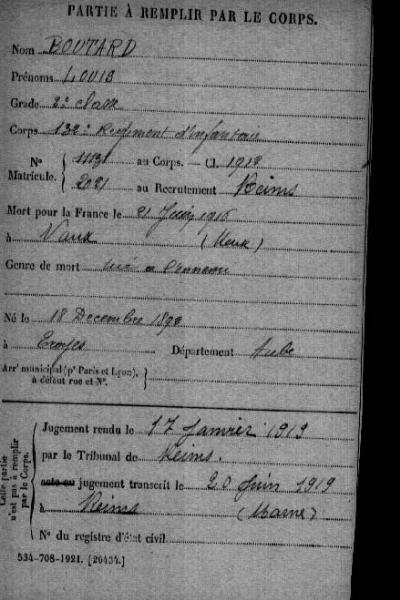 PARTIE À REMPLIR PAR LE CORPS.
Nom BOUTARD
Prénoms LOUIS
Grade 2e classe
Corps 132e Régiment d'Infanterie
N° au Corps. — Cl. 1912
Matricule. 2021 au Recrutement Reims
Mort pour la France le 21 Juin 1916
à Vaux (Meuse)
Genre de mort tué à l'ennemi
Né le 18 Décembre 1892
à Troyes Département Aube
Arrt municipal (pr Paris et Lyon),
à défaut rue et N°.
Cette partie
n'est pas à remplir
par le Corps.
Jugement rendu le 17 Janvier 1919
par le Tribunal de Reims.
acte ou jugement transcrit le 20 Juin 1919
à Reims (Marne)
N° du registre d'état civil
534-708-1921. [26434.]